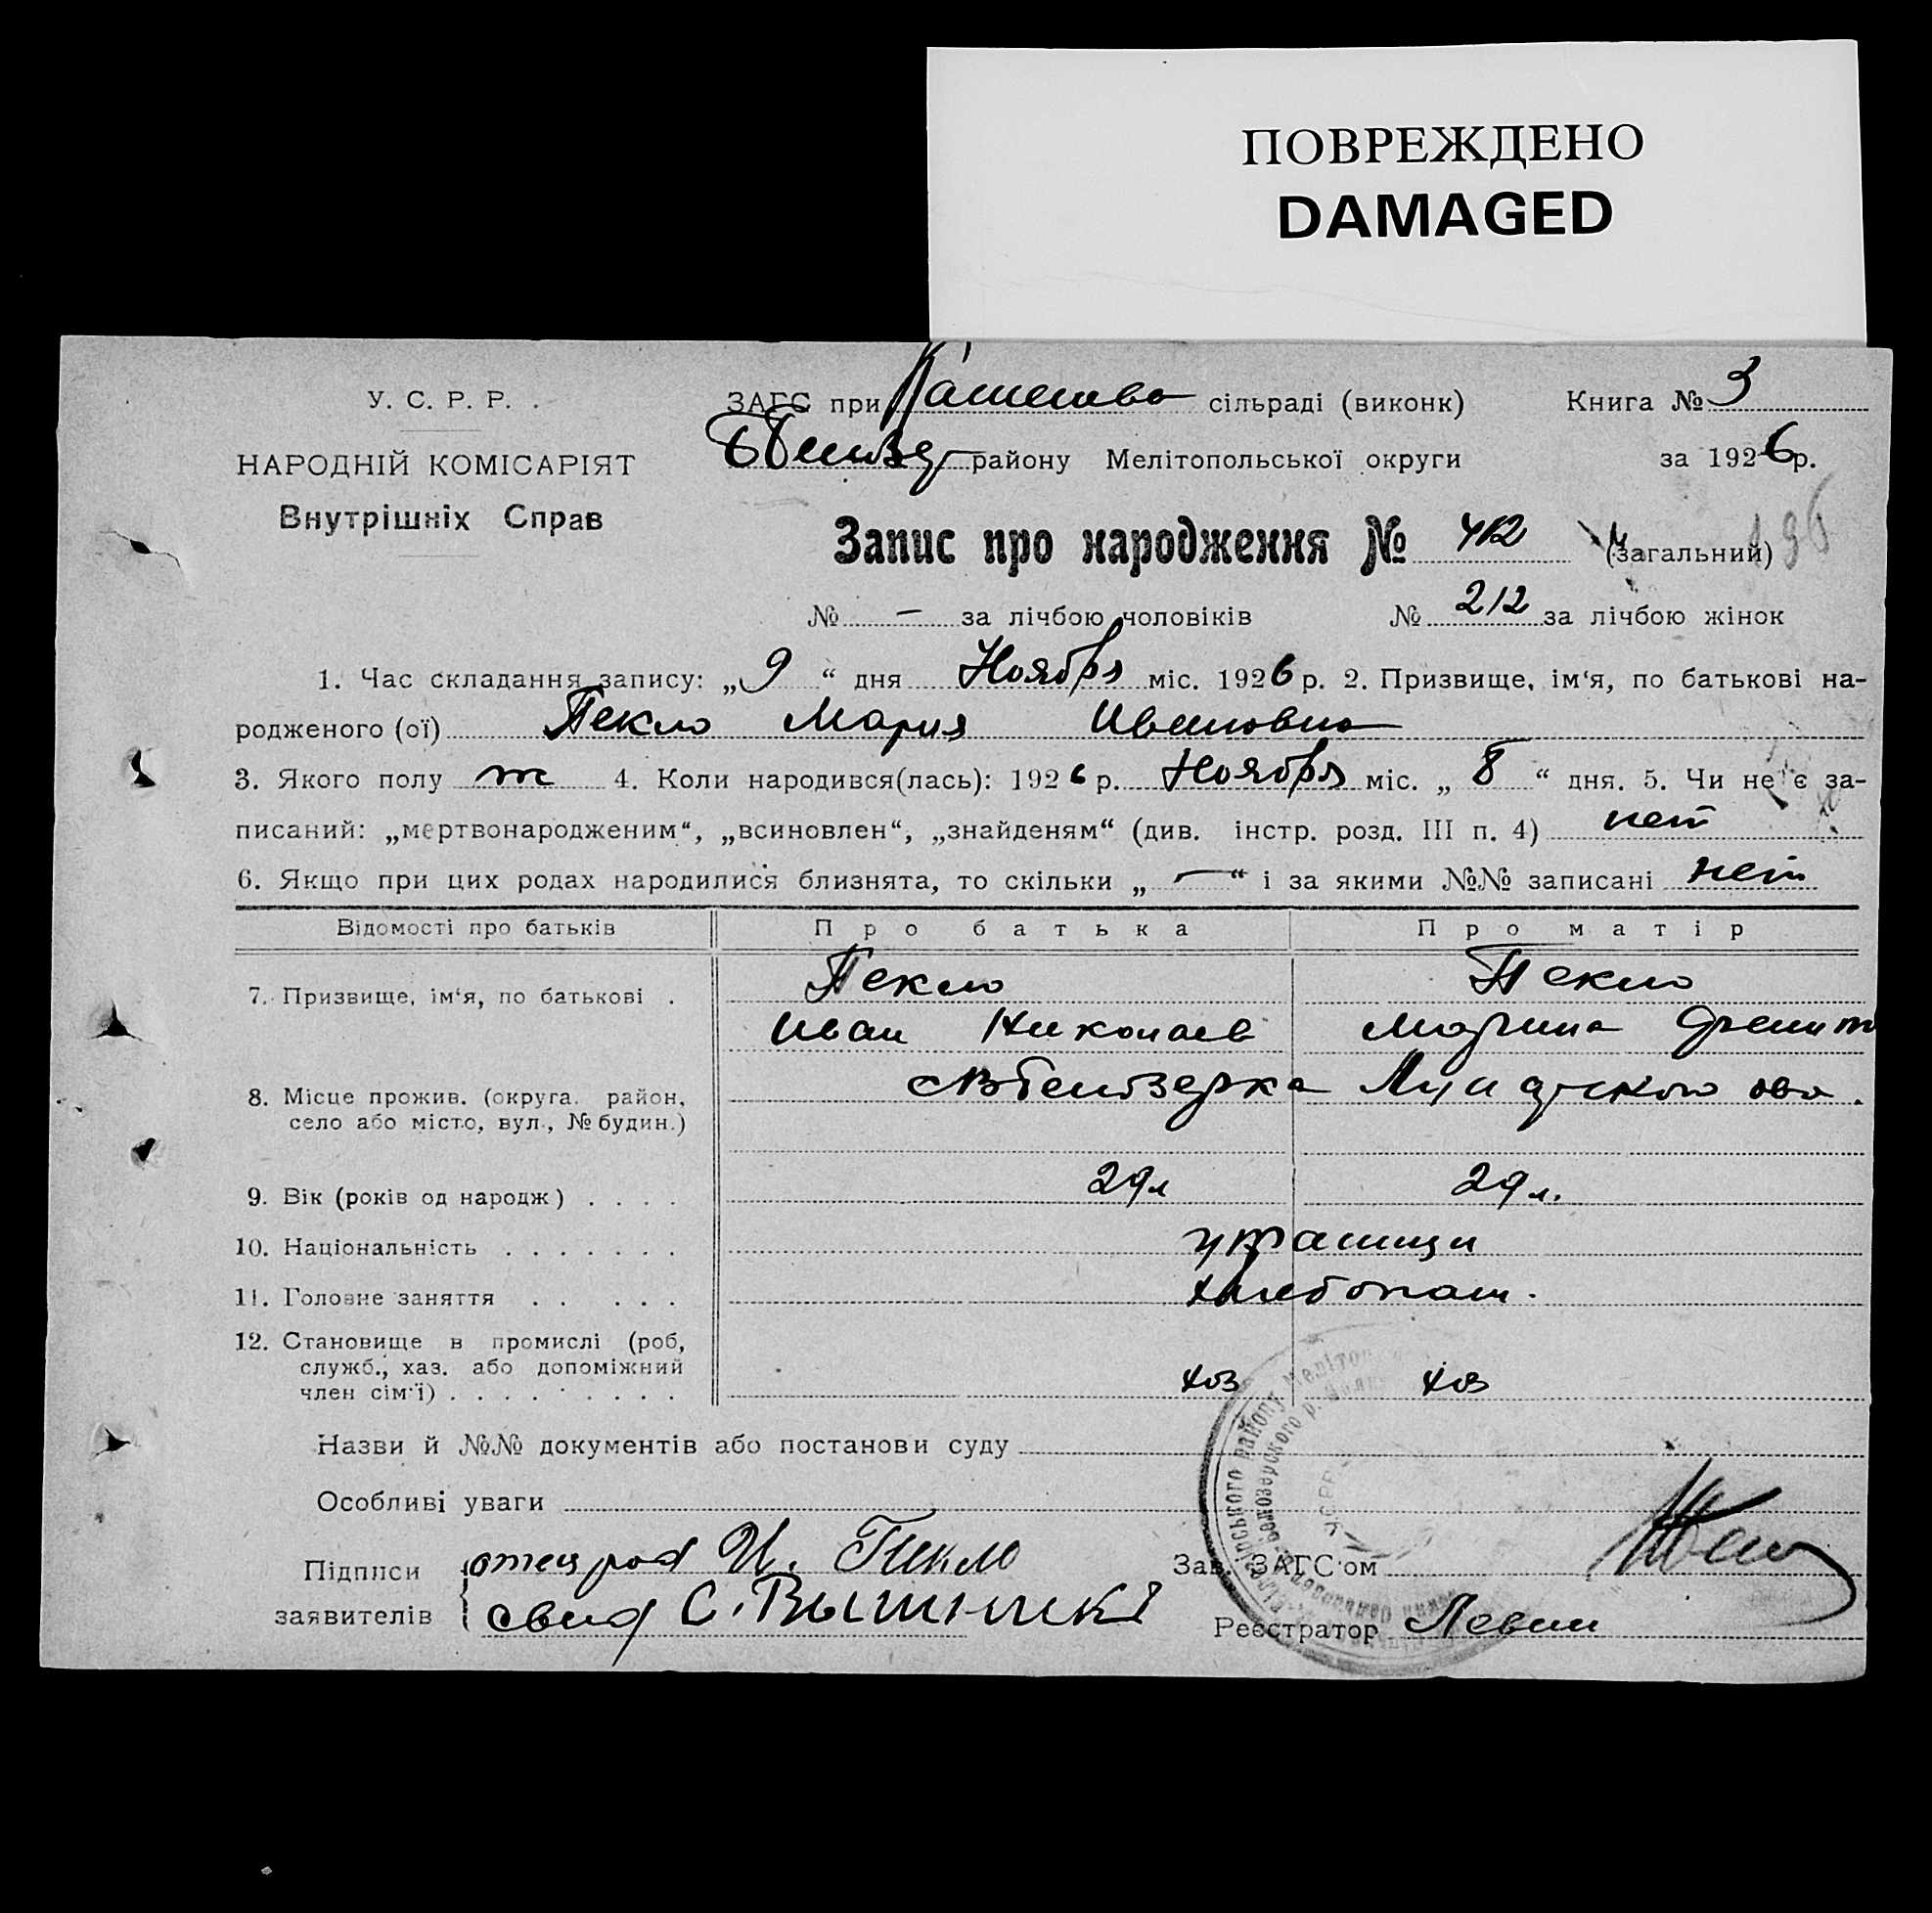 ПОВРЕЖДЕНО
DAMAGED
У. С. Р. Р.
НАРОДНІЙ КОМІСАРІЯТ
Внутрішніх Справ
ЗАГС при сільраді (виконк) Книга № 3
району Мелітопольської округи за 1926 р.
Запис про народження № 412 (загальний) 196
№ — за лічбою чоловіків № 212 за лічбою жінок
1. Час складання запису: „9“ дня Ноября міс. 1926 р. 2. Призвище, ім‘я, по батькові на-
родженого (ої) Пекло Мария Ивановна
3. Якого полу ж 4. Коли народився(лась): 1926 р. Ноября міс. „8“ дня. 5. Чи не є за-
писаний: „мертвонародженим“, „всиновлен“, „знайденям“ (див. інстр. розд. III п. 4) нет
6. Якщо при цих родах народилися близнята, то скільки „—“ і за якими №№ записані нет
Відомості про батьків Про батька Про матір
7. Призвище, ім‘я, по батькові . Пекло Пекло
Иван Николаев Марина
8. Місце прожив. (округа, район,
село або місто, вул., № будин.)
9. Вік (років од народж) . . . . 29 л 29 л.
10. Національність . . . . . . . украинци
11. Головне заняття . . . . . хлебопаш.
12. Становище в промислі (роб,
служб., хаз. або допоміжний
член сім‘ї) . . . . . . . . . хоз хоз
Назви й №№ документів або постанови суду
Особливі уваги
Підписи отец И. Пекло Зав. ЗАГС‘ом
заявителів свид С. Реєстратор Левин